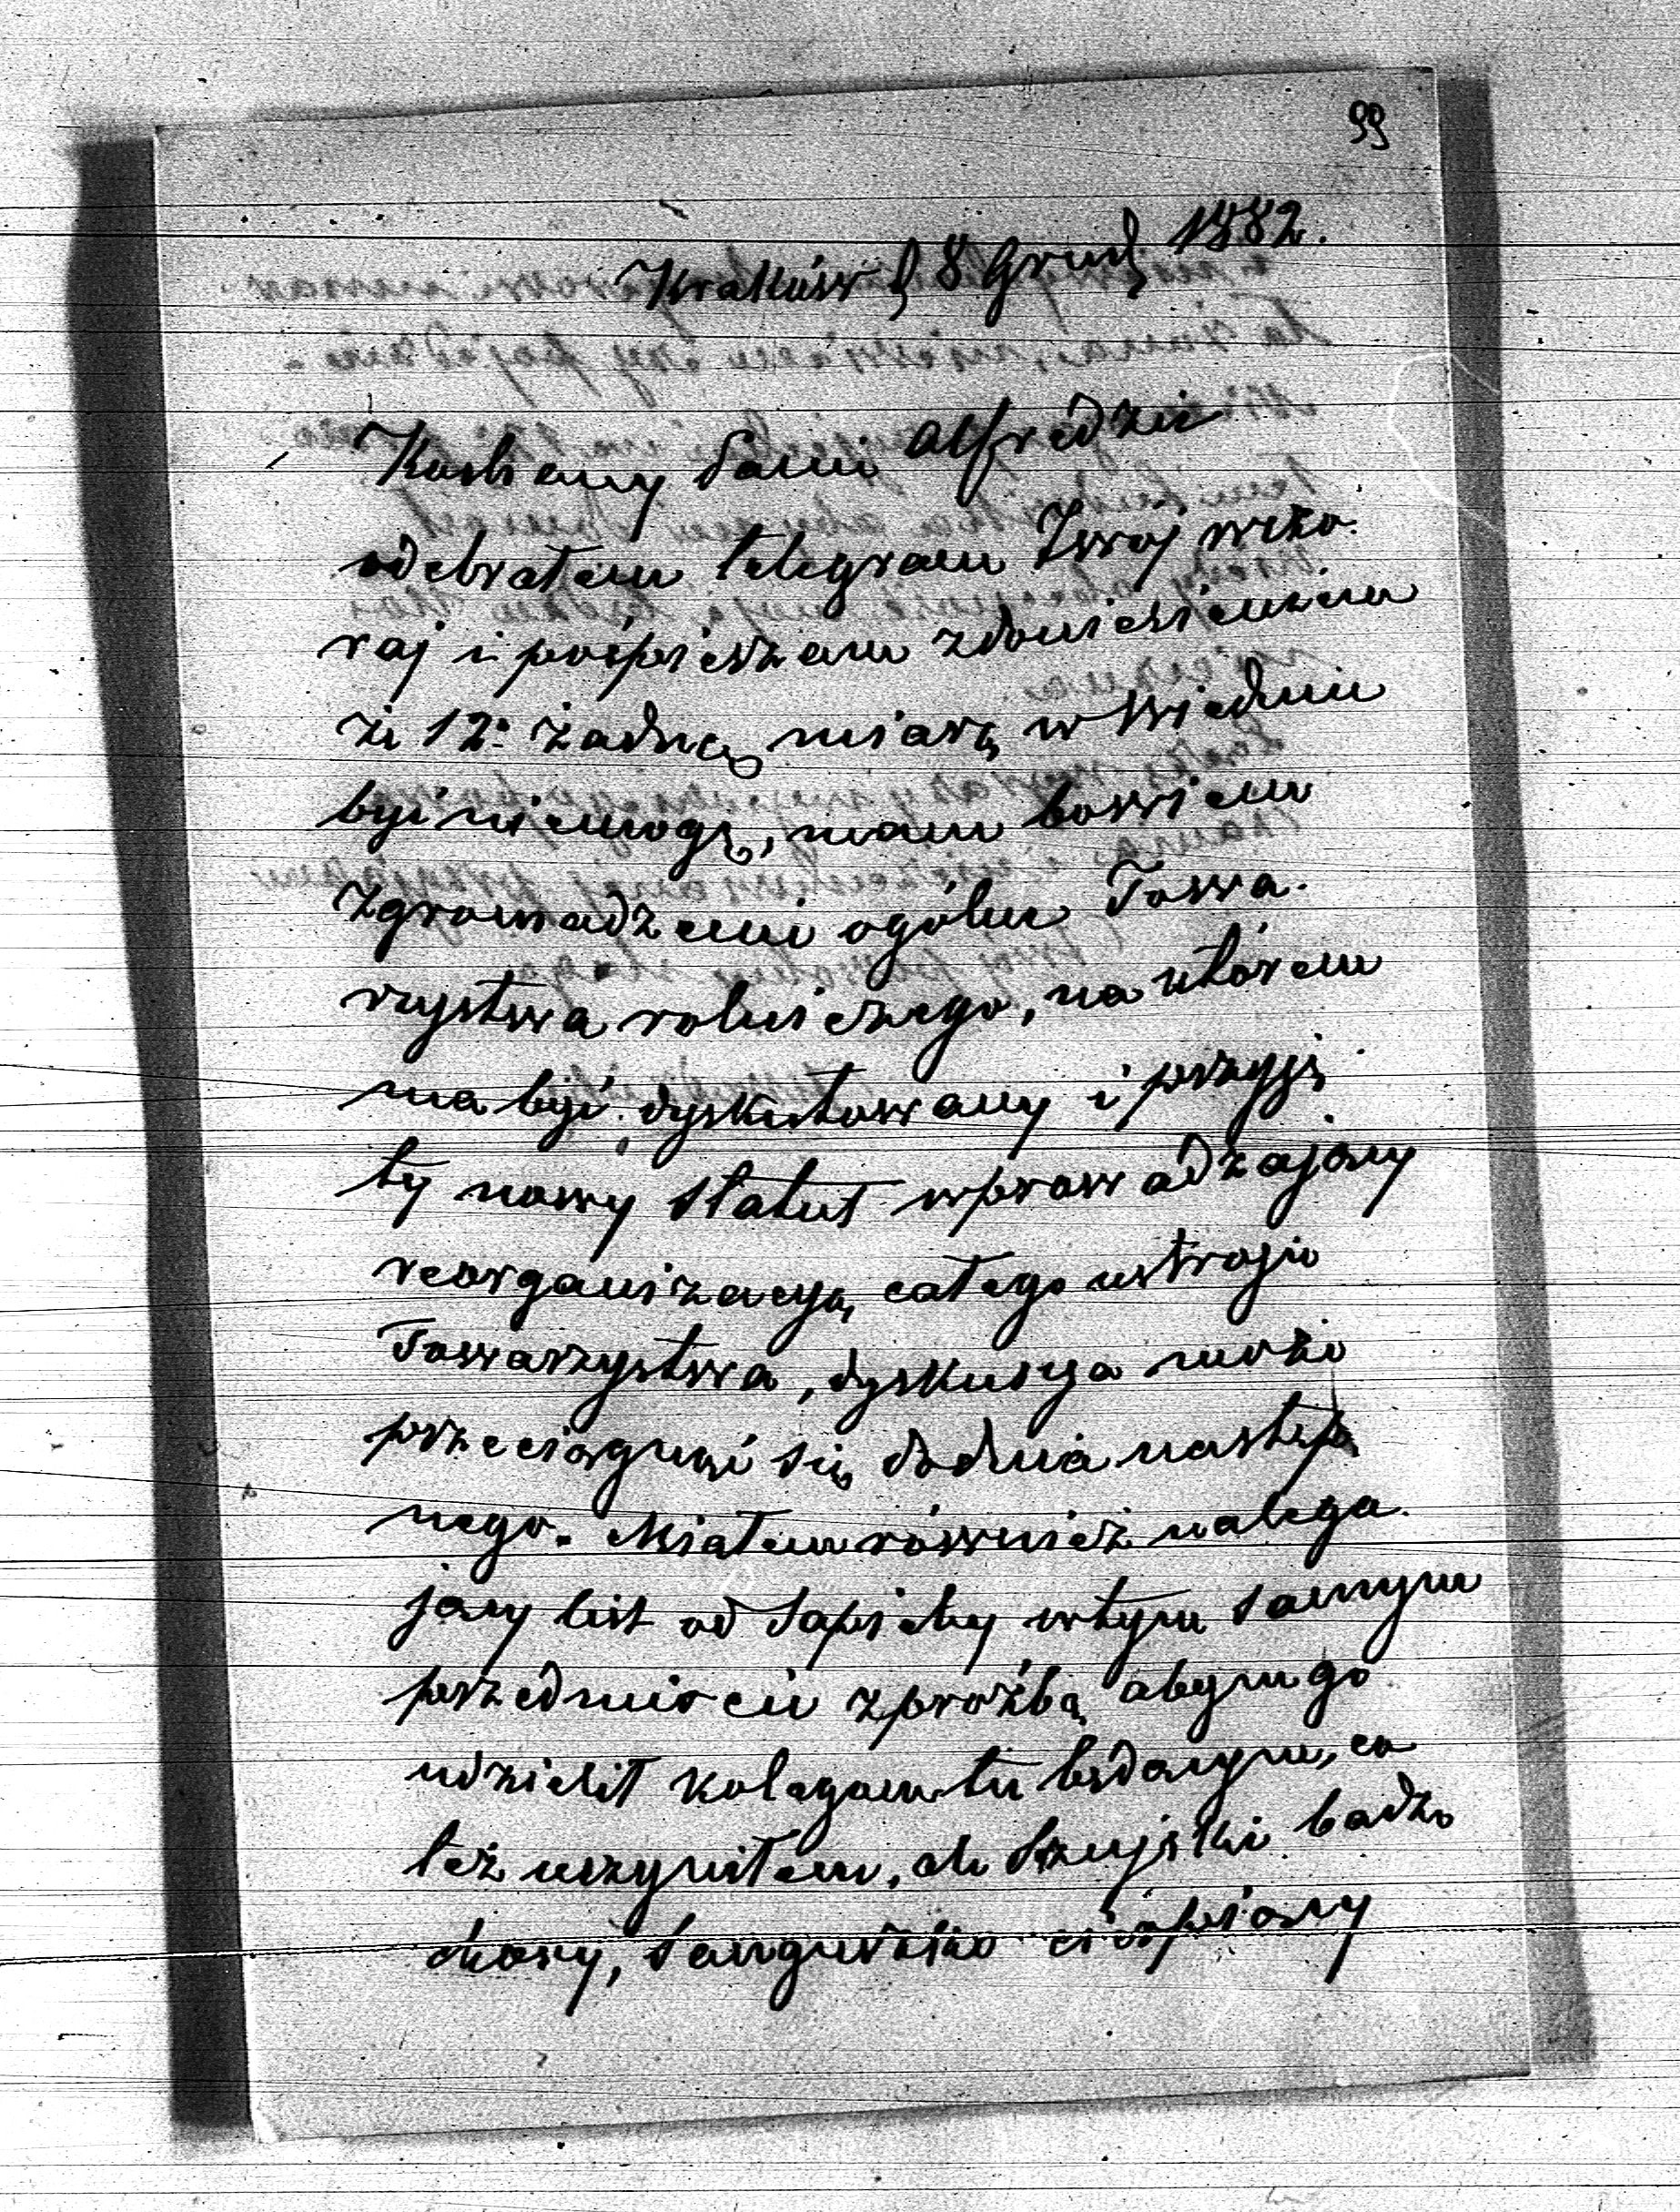 99
Kraków d 8 Grud 1882.
Kochany Panie Alfredzie
odebrałem telegram Twój wczo.
raj i pośpieszam z doniesieniem
że 12º żadną miarą w Wiedniu
być niemogę, mam bowiem
Zgromadzenie ogólne Towa.
rzystwa rolniczego, na którem
ma być dyskutowany i przyję
ty nowy Statut wprowadzający
reorganizacyą całego ustroju
Towarzystwa, dyskusya może
przeciągnąć się do dnia następ
nego. Miałem również nalega.
jący list od Sapiehy w tym samym
przedmiocie z prośbą abym go
udzielił kolegom tu będącym, co
też uczyniłem, ale Szujski badzo
chory, Sanguszko cierpiący